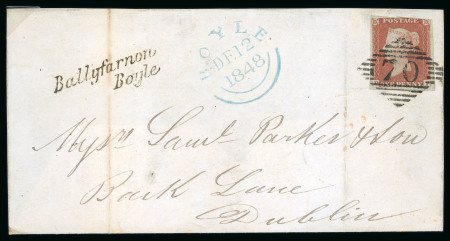 Ballyfarnon
Boyle
BOYLE
DE 12
1848
POSTAGE
ONE PENNY
79
Messrs Saml. Parker & Son
Back Lane
Dublin